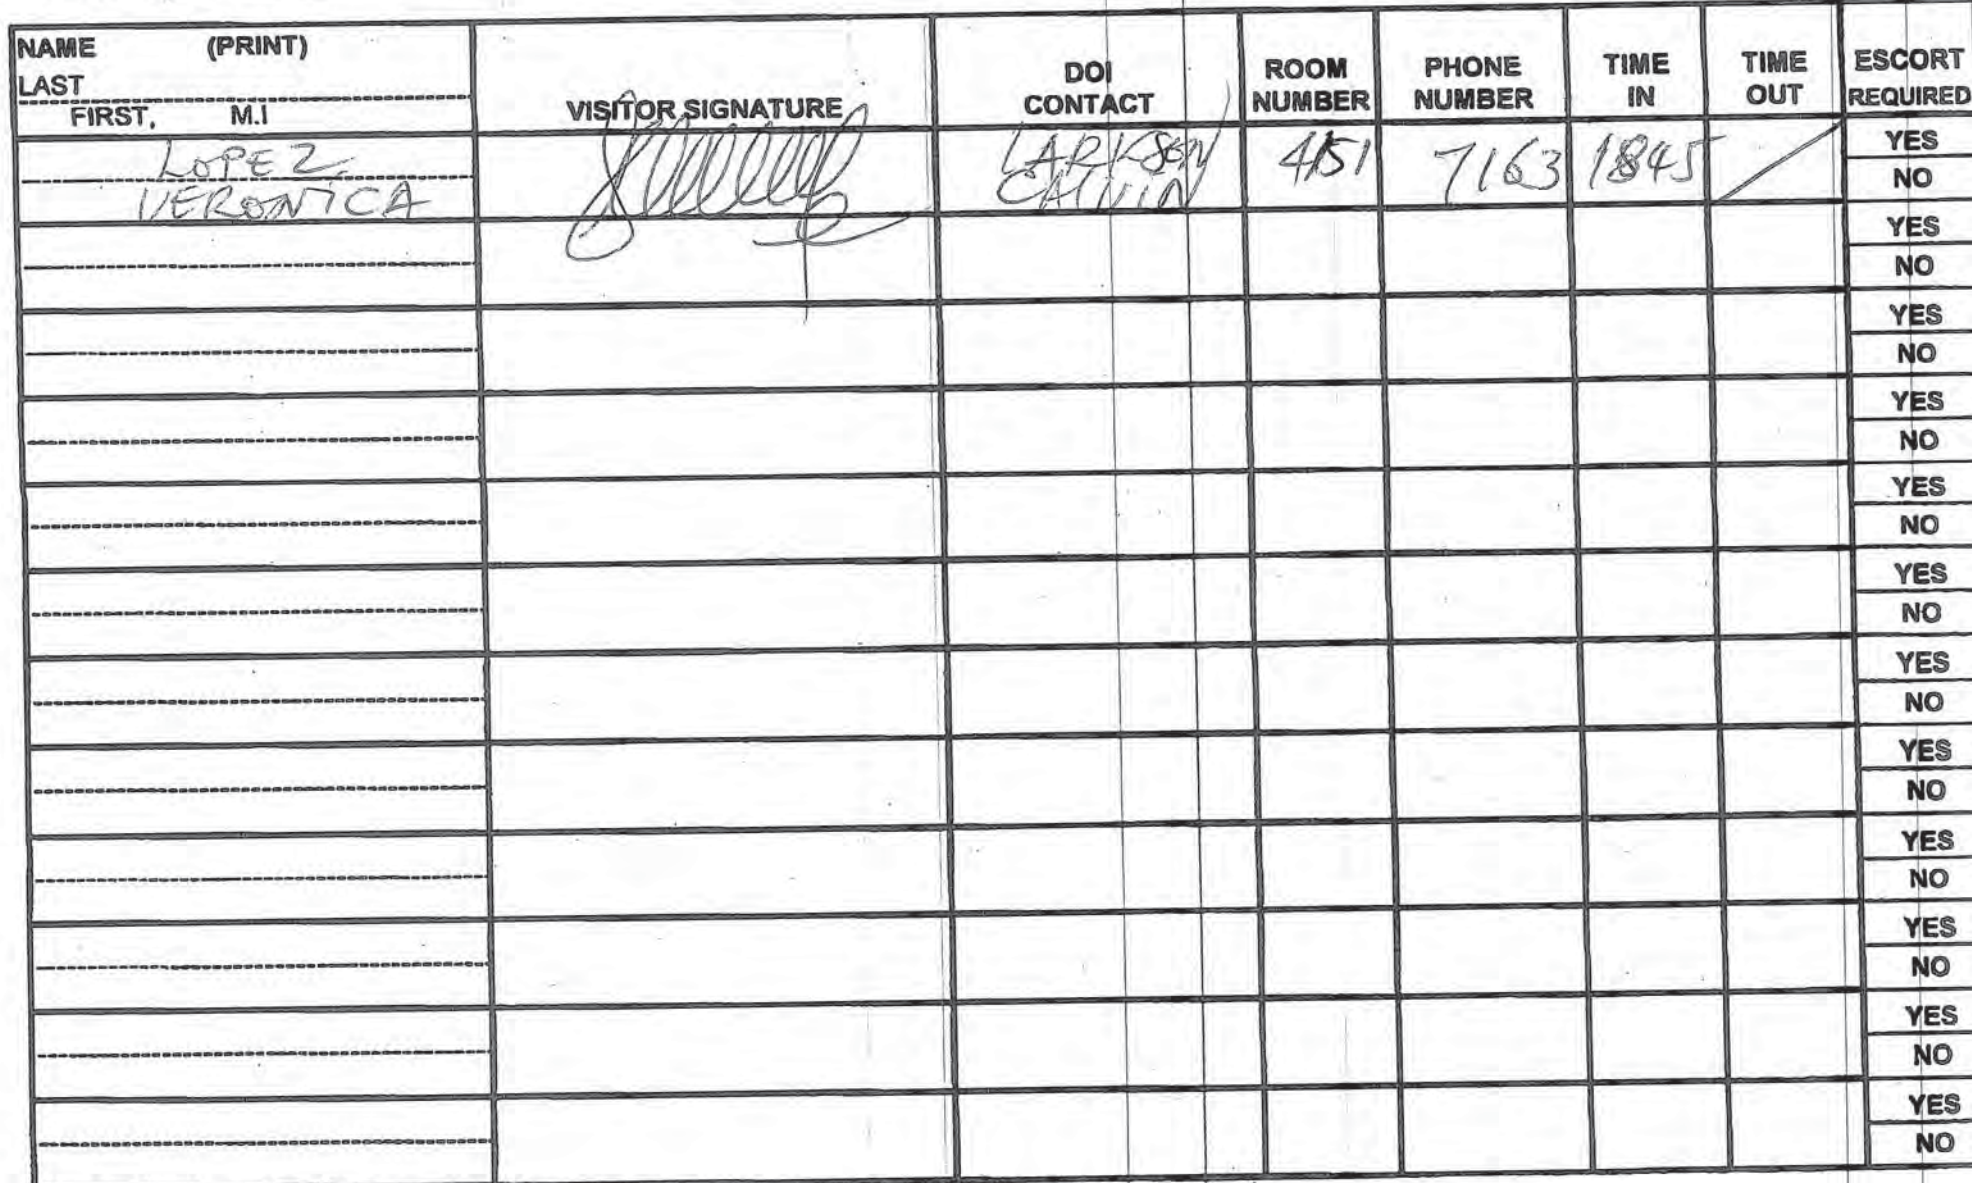 NAME (PRINT)
LAST
FIRST, M.I
VISITOR SIGNATURE
DOI
CONTACT
ROOM
NUMBER
PHONE
NUMBER
TIME
IN
TIME
OUT
ESCORT
REQUIRED
LOPEZ
VERONICA
LARKSON
CALVIN
4151
7163
1845
YES
NO
YES
NO
YES
NO
YES
NO
YES
NO
YES
NO
YES
NO
YES
NO
YES
NO
YES
NO
YES
NO
YES
NO